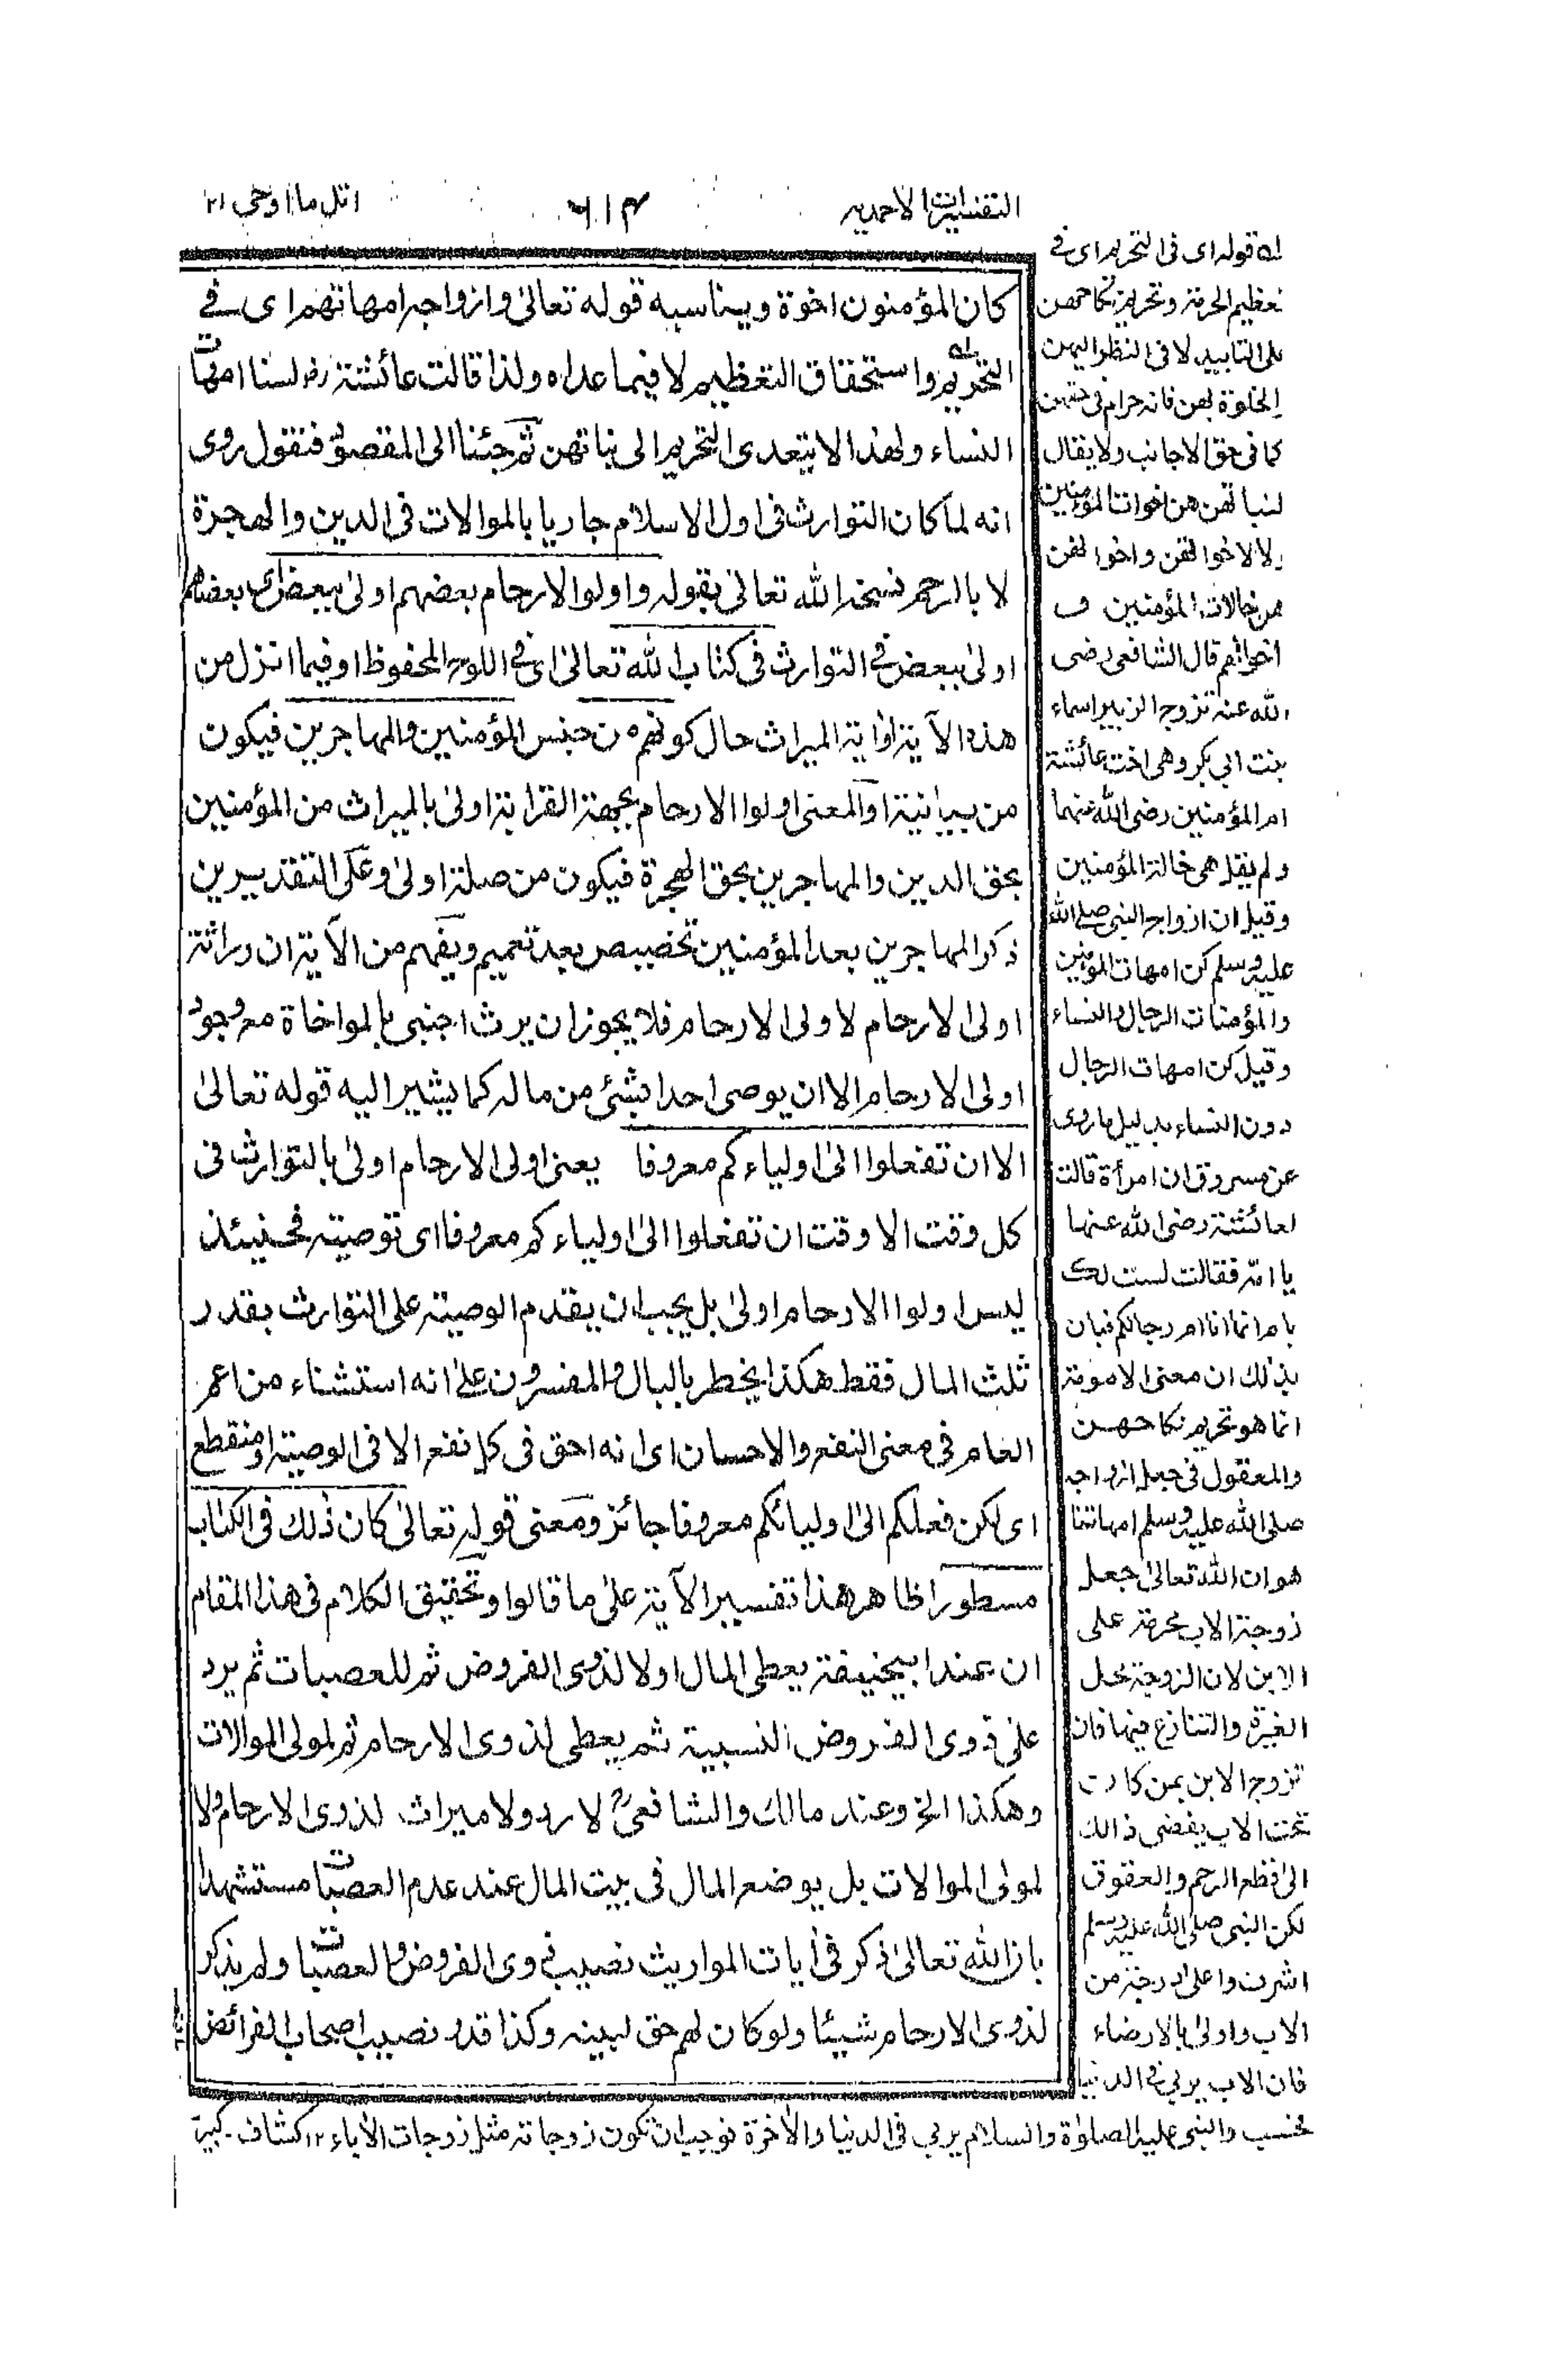 التفسيرات الاحمديه
٦١٣
اتل ما اوحى ٢١
كان المؤمنون اخوة ويناسبه قوله تعالىٰ وازواجه امهاتهم اى فى
التحريم واستحقاق التعظيم لا فيما عداه ولذا قالت عائشة رضـ لسنا امهات
النساء ولهذا لا يتعدى التحريم الى بناتهن ثم جئنا الى المقصود فنقول روى
انه لما كان التوارث فى اول الاسلام جاريا بالموالات فى الدين والهجرة
لا بالرحم نسخه الله تعالىٰ بقوله واولوا الارحام بعضهم اولىٰ ببعض اى بعضهم
اولىٰ ببعض فى التوارث فى كتاب الله تعالىٰ اى فى اللوح المحفوظ او فيما انزل من
هذه الآية او اٰية الميراث حال كونهم من جنس المؤمنين والمهاجرين فيكون
من بيانية او المعنى اولوا الارحام بجهة القرابة اولىٰ بالميراث من المؤمنين
بحق الدين والمهاجرين بحق الهجرة فيكون من صلة اولىٰ وعلى التقديرين
ذكر المهاجرين بعد المؤمنين تخصيص بعد تعميم ويفهم من الآية ان وراثة
اولى الارحام لاولى الارحام فلا يجوز ان يرث اجنبى بالمواخاة مع وجود
اولى الارحام الا ان يوصى احدا بشئ من ماله كما يشير اليه قوله تعالىٰ
الا ان تفعلوا الىٰ اولياءكم معروفا يعنى اولى الارحام اولىٰ بالتوارث فى
كل وقت الا وقت ان تفعلوا الىٰ اولياءكم معروفا اى توصية فحينئذ
ليس اولوا الارحام اولىٰ بل يجب ان يقدم الوصية على التوارث بقدر
ثلث المال فقط هكذا يخطر بالبال والمفسرون علىٰ انه استثناء من اعم
العام فى معنى النفع والاحسان اى انه احق فى كل نفع الا فى الوصية او منقطع
اى لكن فعلكم الىٰ اوليائكم معروفا جائز ومعنى قوله تعالىٰ كان ذٰلك فى الكتاب
مسطورا ظاهر هذا تفسير الآية علىٰ ما قالوا وتحقيق الكلام فى هذا المقام
ان عند ابيحنيفة يعطى المال اولا لذوى الفروض ثم للعصبات ثم يرد
علىٰ ذوى الفروض النسبية ثم يعطى لذوى الارحام ثم لمولى الموالات
وهكذا الخ وعند مالك والشافعىؒ لا رد ولا ميراث لذوى الارحام ولا
لمولى الموالات بل يوضع المال فى بيت المال عند عدم العصبات مستشهدا
بان الله تعالىٰ ذكر فى اٰيات المواريث نصيب ذوى الفروض والعصبات ولم يذكر
لذوى الارحام شيئا ولو كان لهم حق لبينه وكذا قدر نصيب اصحاب الفرائض
له قوله اى فى التحريم اى فى
تعظيم الحرمة وتحريم نكاحهن
على التابيد لا فى النظر اليهن
الخلوة بهن فانه حرام فى حقهن
كما فى حق الاجانب ولا يقال
لبناتهن هن اخوات المؤمنين
ولا لاخواتهن واخوالهن
من خالات المؤمنين و
اخوالهم قال الشافعى رضى
الله عنه تزوج الزبير اسماء
بنت ابى بكر وهى اخت عائشة
ام المؤمنين رضى الله عنهما
ولم يقل هى خالة المؤمنين
وقيل ان ازواج النبى صلى الله
عليه وسلم كن امهات المؤمنين
والمؤمنات الرجال والنساء
وقيل كن امهات الرجال
دون النساء بدليل ما روى
عن مسروق ان امرأة قالت
لعائشة رضى الله عنها
يا امه فقالت لست لك
بام انما انا ام رجالكم فبان
بذٰلك ان معنى الامومة
انما هو تحريم نكاحهن
والمعقول فى جعل ازواجه
صلى الله عليه وسلم امهاتنا
هو ان الله تعالىٰ جعل
زوجة الاب محرمة على
الابن لان الزوجة محل
الغيرة والتنازع فيها فان
تزوج الابن بمن كانت
تحت الاب يفضى ذالك
الىٰ قطع الرحم والعقوق
لكن النبى صلى الله عليه وسلم
اشرف واعلىٰ درجة من
الاب واولىٰ بالارضاء
فان الاب يربى فى الدنيا
فحسب والنبى عليه الصلوٰة والسلام يربى فى الدنيا والاٰخرة فوجب ان تكون زوجاته مثل زوجات الاٰباء ١٢ كشاف ـ كبير